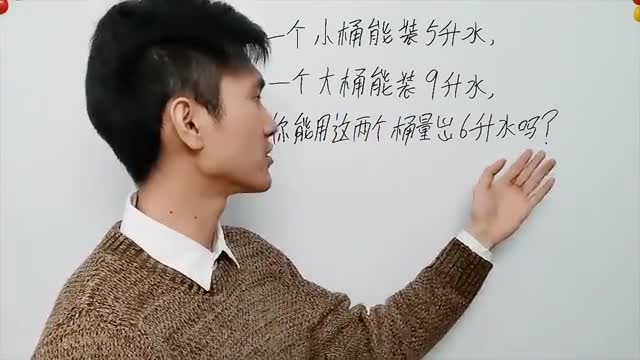 一个小桶能装5升水,
一个大桶能装9升水,
你能用这两个桶量出6升水吗?